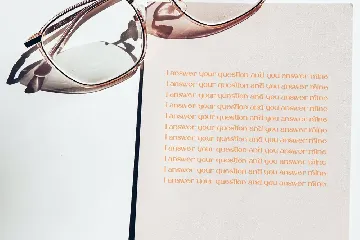 I answer your question and you answer mine
I answer your question and you answer mine
I answer your question and you answer mine
I answer your question and you answer mine
I answer your question and you answer mine
I answer your question and you answer mine
I answer your question and you answer mine
I answer your question and you answer mine
I answer your question and you answer mine
I answer your question and you answer mine
I answer your question and you answer mine